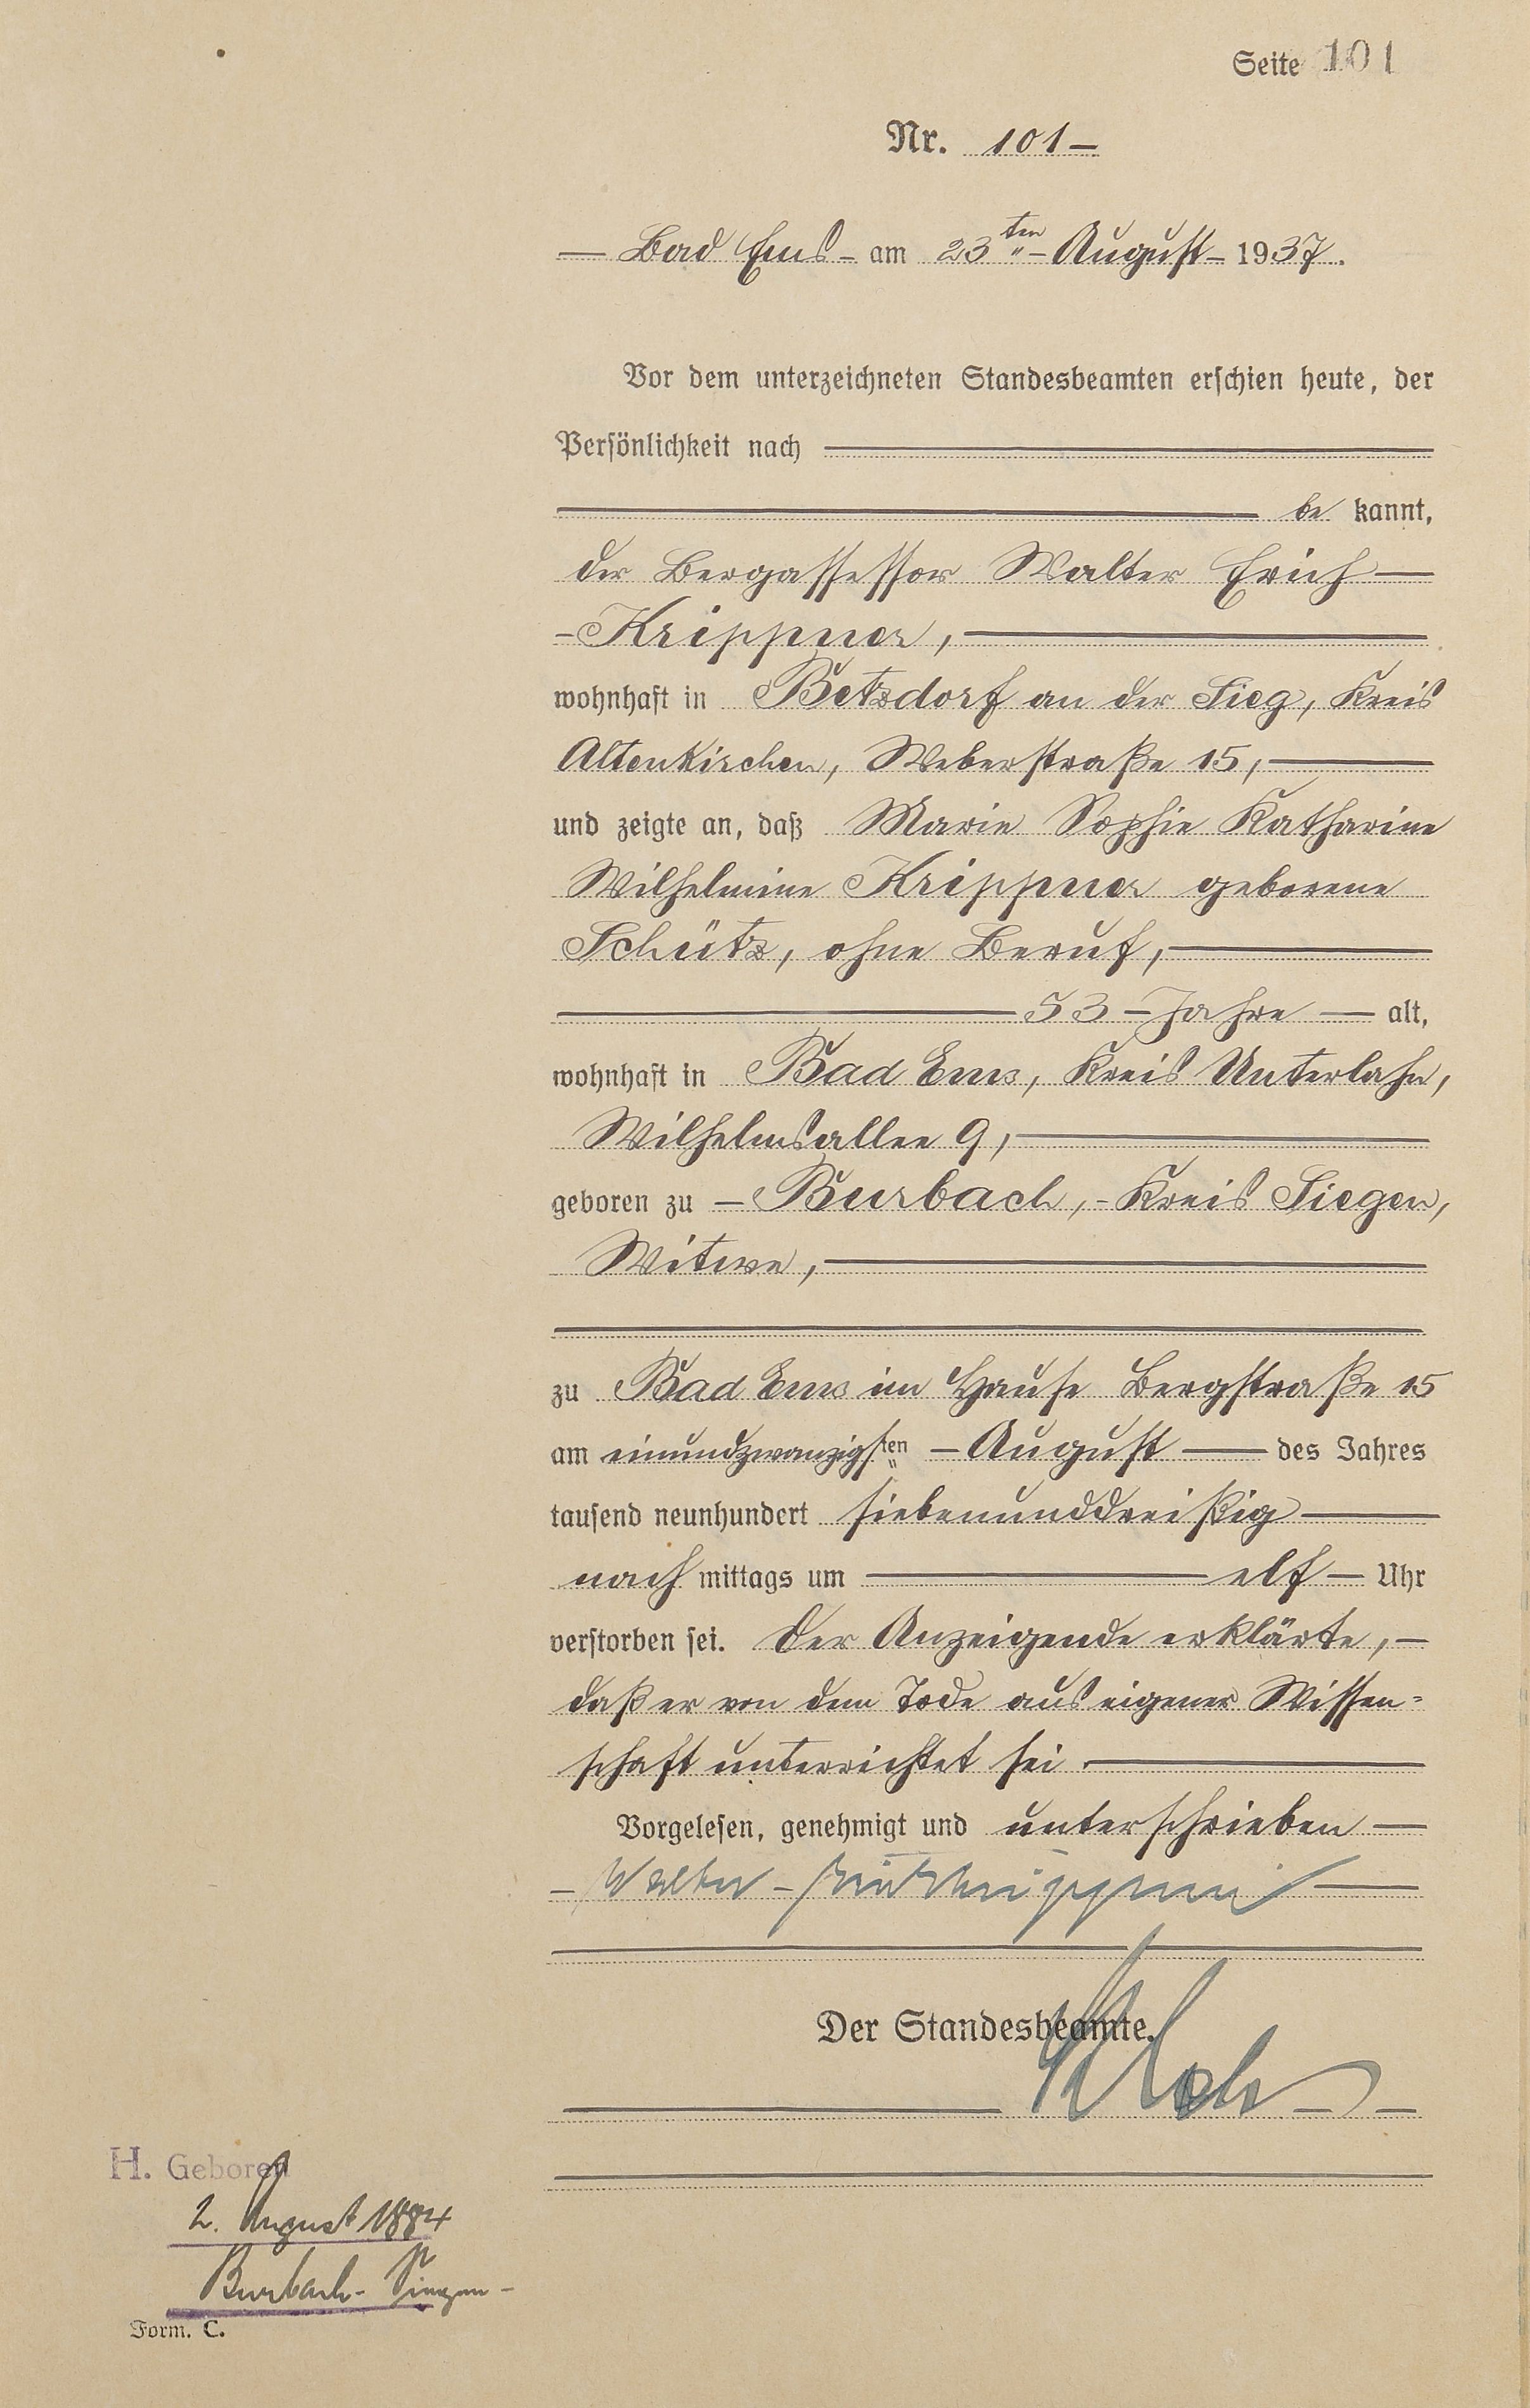 Seite 101
Nr. 101 —
— Bad Ems — am 23ten — August — 1937.
Vor dem unterzeichneten Standesbeamten erschien heute, der
Persönlichkeit nach
be kannt,
der Bergassessor Walter Erich —
— Krippner, —
wohnhaft in Betzdorf an der Sieg, Kreis
Altenkirchen, Weberstraße 15, —
und zeigte an, daß Marie Sophie Katharine
Wilhelmine Krippner geborene
Schütz, ohne Beruf, —
— 53 — Jahre — alt,
wohnhaft in Bad Ems, Kreis Unterlahn,
Wilhelmsallee 9, —
geboren zu — Burbach, - Kreis Siegen,
Witwe, —
zu Bad Ems im Hause Bergstraße 15
am einundzwanzigsten — August — des Jahres
tausend neunhundert siebenunddreißig —
nach mittags um — elf — Uhr
verstorben sei. Der Anzeigende erklärte, —
daß er von dem Tode aus eigener Wissen=
schaft unterrichtet sei —
Vorgelesen, genehmigt und unterschrieben —
— Walter - Erich Krippner —
Der Standesbeamte.
H. Geboren
2. August 1884
Burbach - Siegen -
Form. C.